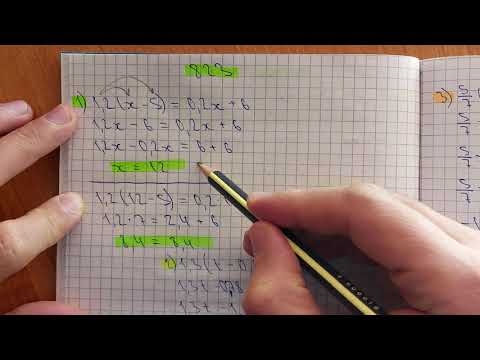 823
1) 1,2(x - 5) = 0,2x + 6
1,2x - 6 = 0,2x + 6
1,2x - 0,2x = 6 + 6
x = 12
1,2(12 - 5) = 0,2
1,2 · 7 = 2,4 + 6
8,4 = 8,4
2) 1,3(t - 0
1,3t
1,3t -
3) 5/7
5/7
5/7
5/7